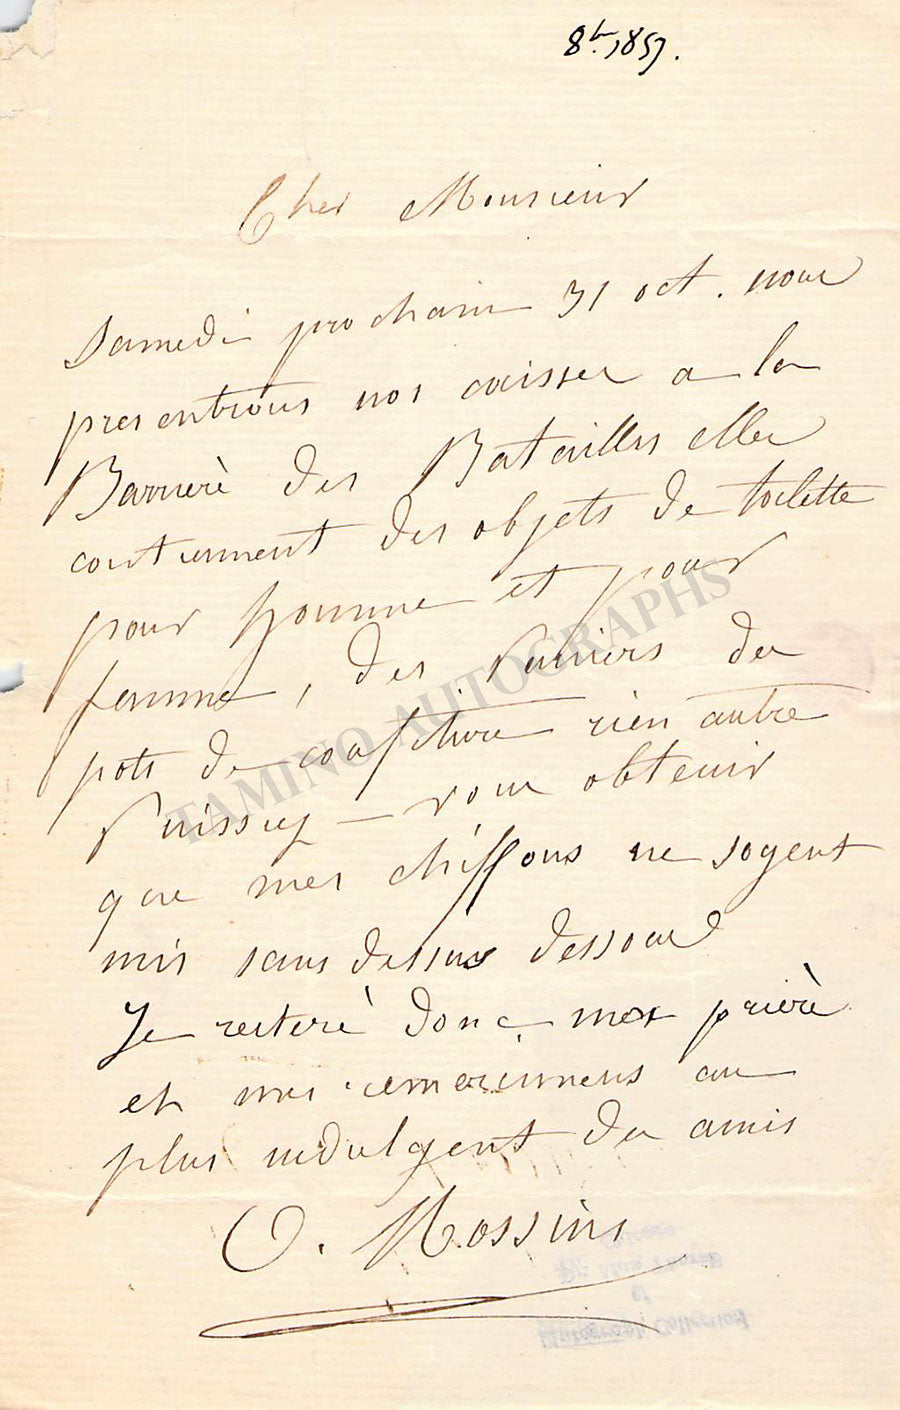 8bre 1857.
Cher Monsieur
Samedi prochain 31 oct. nous
presentrons nos caisses a la
Barrierè des Batailles elles
contiennent des objets de toilette
pour homme et pour
femme, des Paniers des
pots de confiture rien autre
Puissiez-vous obtenir
que mes chiffons ne soyent
mis sans dessus dessous
Je reiterè donc mes prierè
et mes remerciemens au
plus indulgent des amis
O. Rossini
TAMINO AUTOGRAPHS
Autograph Collection